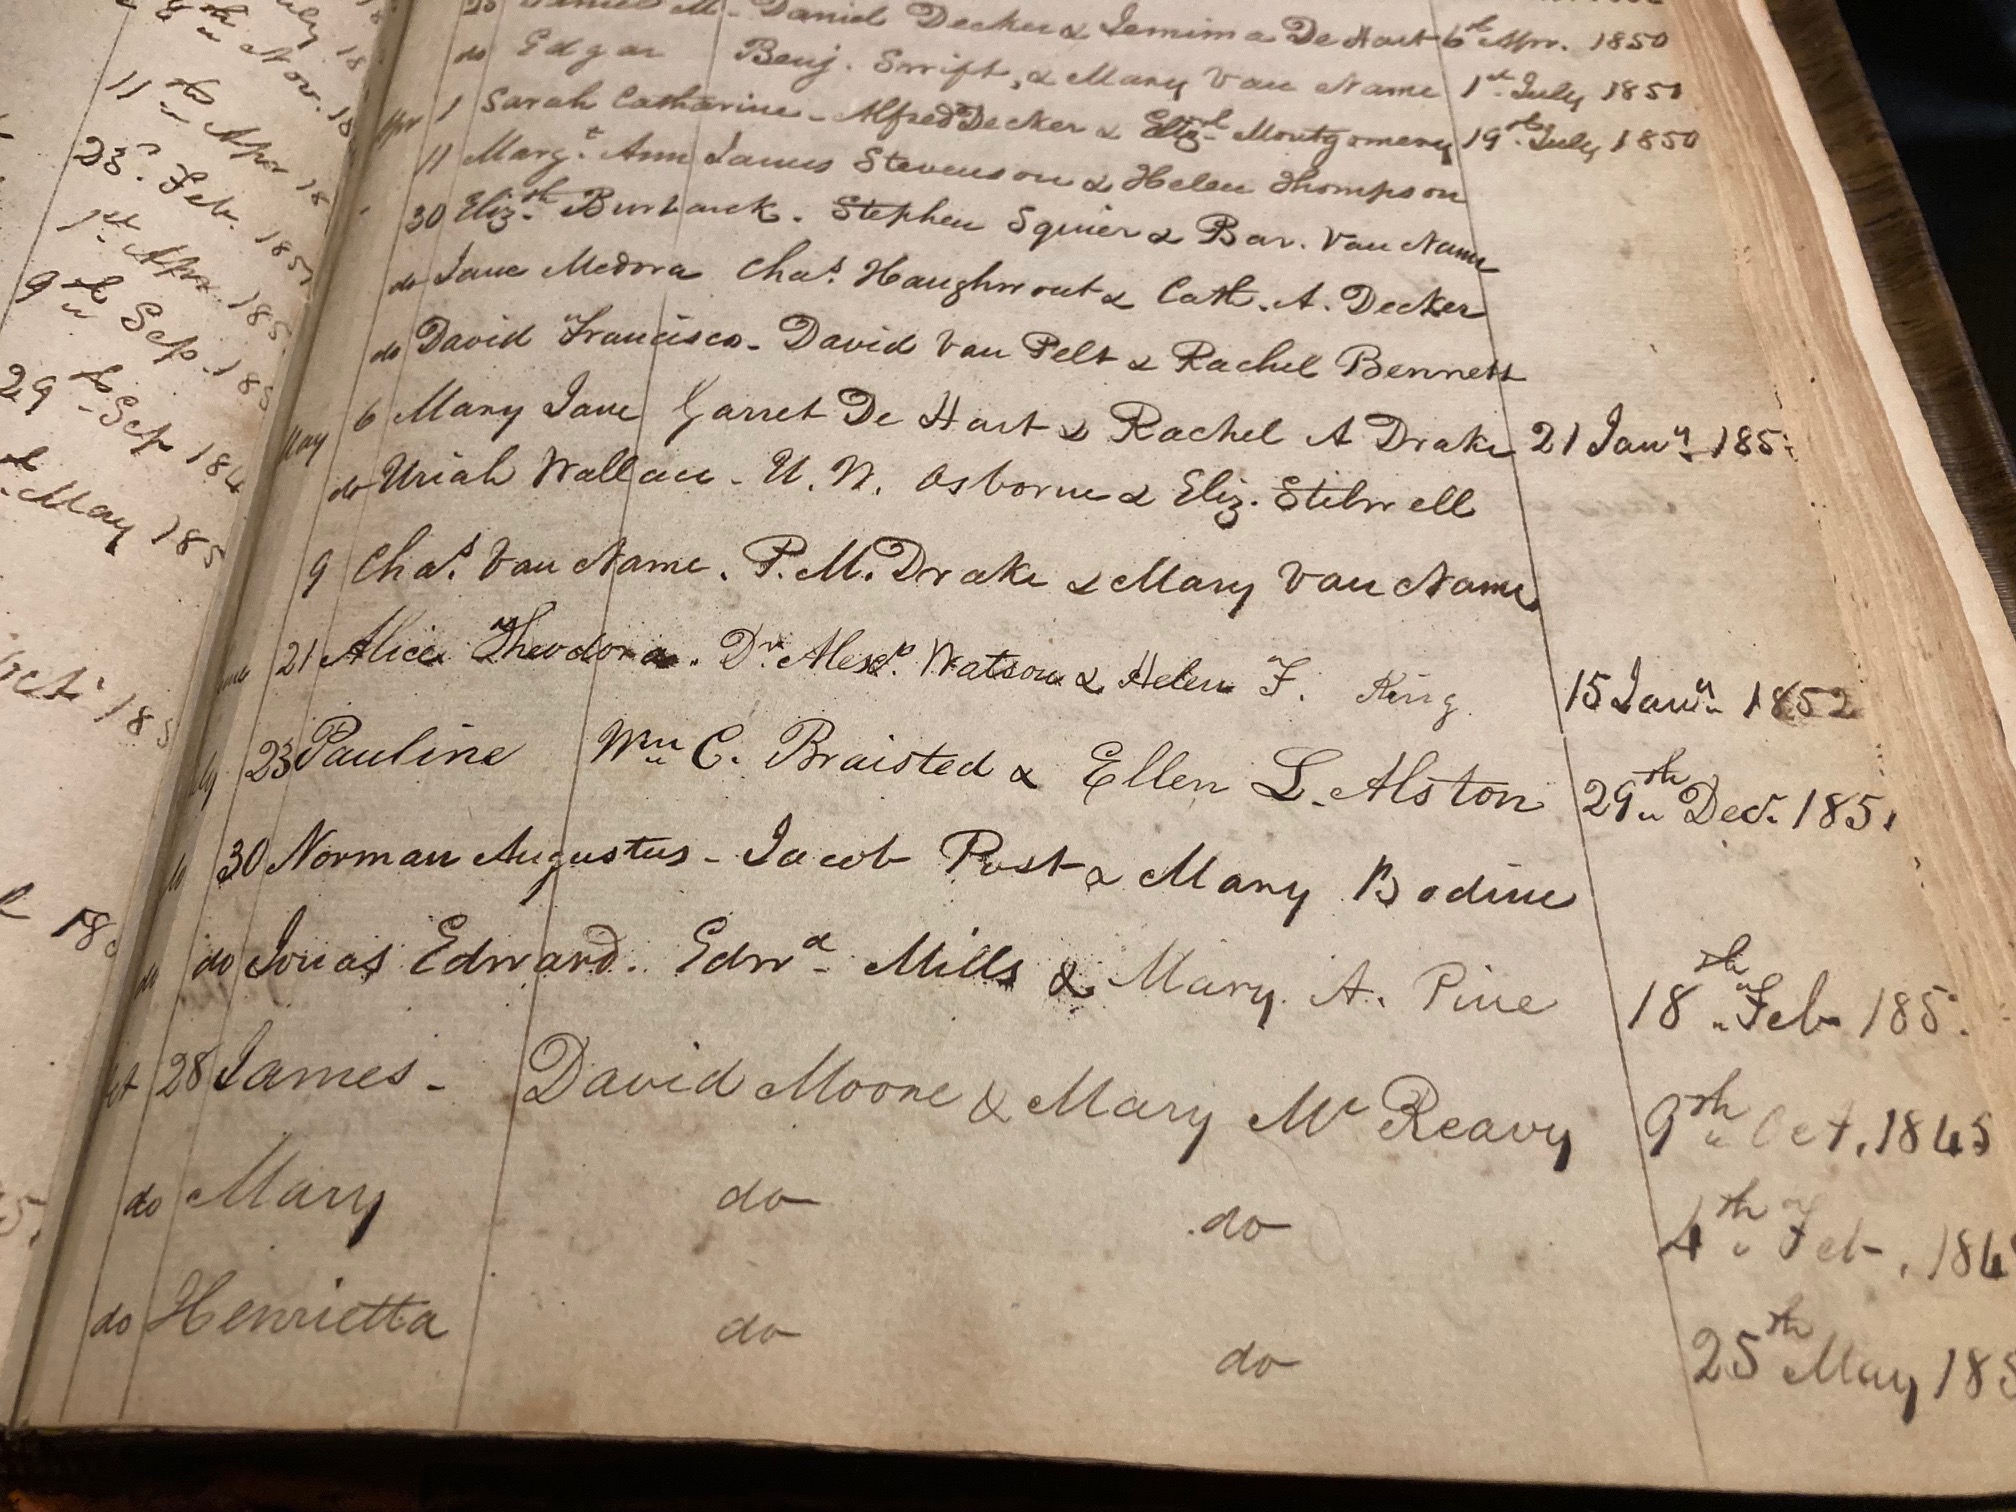 July 18
th Nov. 18
11th Apr 18
23d Feb. 1851
1st Apr. 185
9th Sep. 185
29th Sep 184
May 185
Oct 185
18
25 Daniel M. - Daniel Decker & Jemima De Hart 6th Apr. 1850
do Edgar Benj. Swift, & Mary Van Name 1st July 1851
Apr 1 Sarah Catharine - Alfred Decker & Elizth Montgomery 19th July 1850
11 Margt Ann James Stevenson & Helen Thompson
30 Elizth Burbanck. Stephen Squier & Bar. Van Name
do Jane Medora Chas. Haughwout & Cath. A. Decker
do David Francisco - David Van Pelt & Rachel Bennett
May 6 Mary Jane Garret De Hart & Rachel A Drake 21 Jany 185
do Uriah Wallace - U. W. Osborne & Eliz. Stilwell
9 Chas. Van Name. P. M. Drake & Mary Van Name
21 Alice Theodora. Dr. Alexr. Watson & Helen F. King 15 Jany 1852
23 Pauline Wm C. Braisted & Ellen L. Alston 29th Dec. 1851
do 30 Norman Augustus - Jacob Post & Mary Bodine
do do Jonas Edward. Edwd Mills & Mary A. Pine 18th Feb 185
28 James - David Moore & Mary Mc Reavy 9th Oct. 1845
do Mary do do 4th Feb. 184
do Henrietta do do 25th May 185